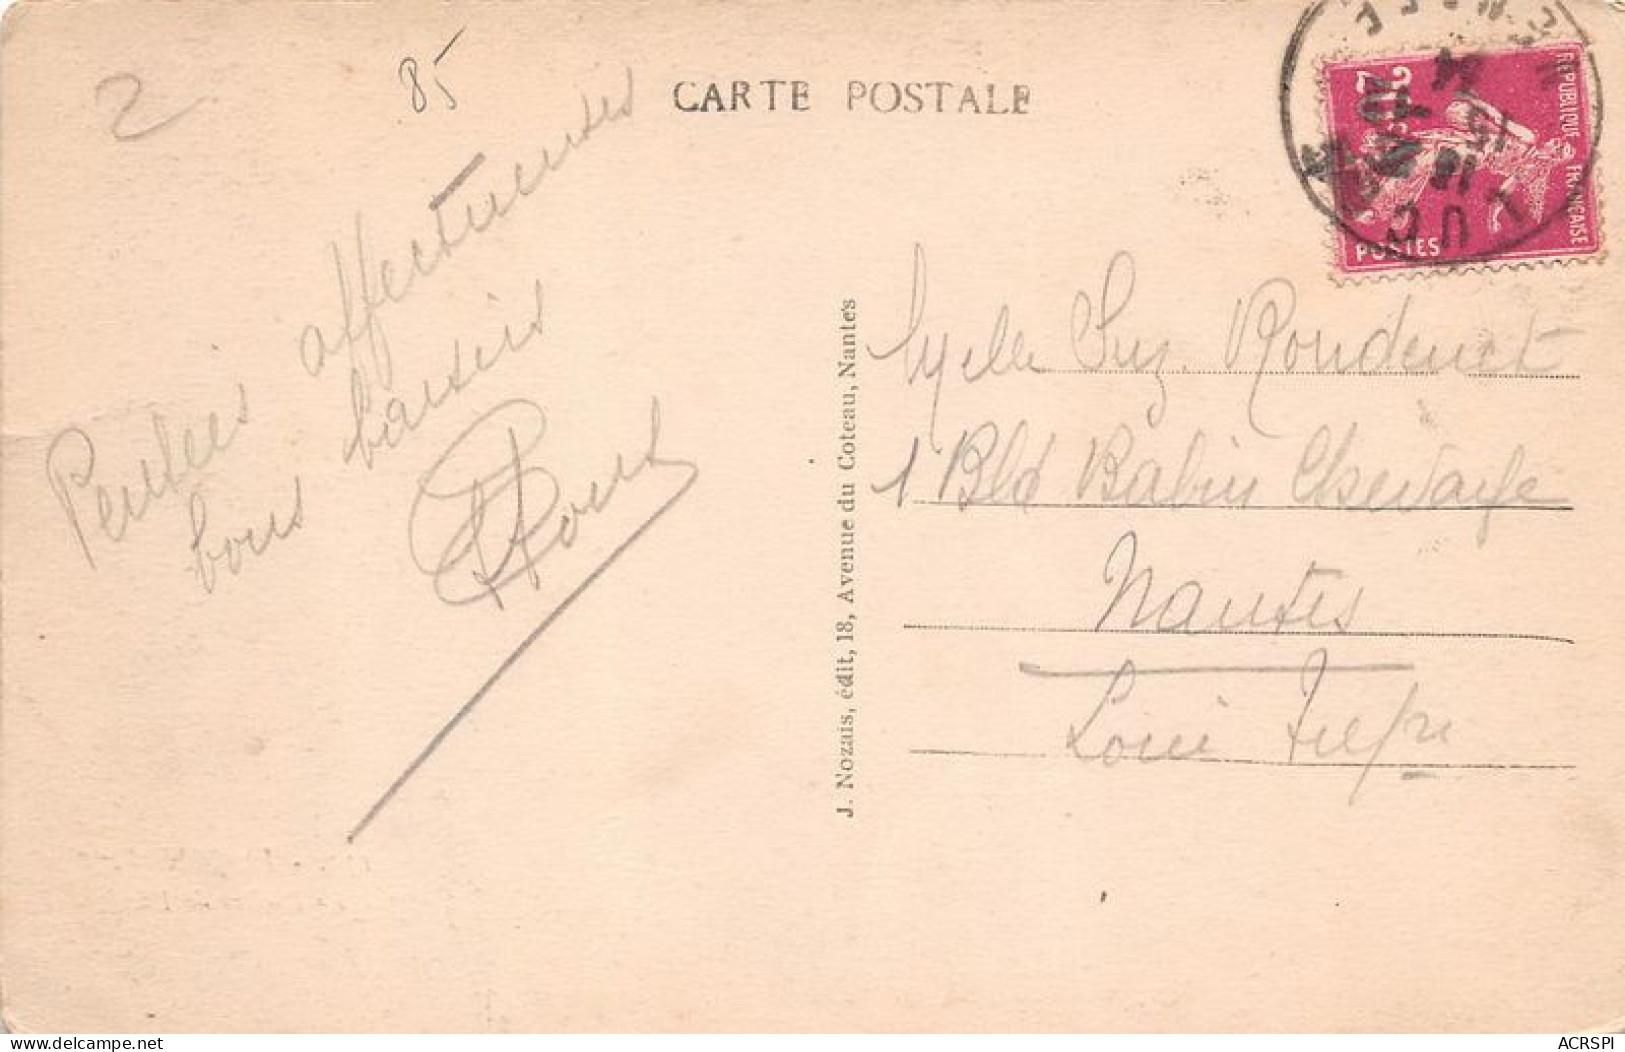 2
85
CARTE POSTALE
REPUBLIQUE FRANÇAISE
20c
POSTES
LUÇ
15 14
18
Pensées affectueuses
bons baisers
J. Nozais, édit, 18, Avenue du Coteau, Nantes
Suz. Rondenet
1 Bld Babin Chevaye
Nantes
Loire Infre
ACRSPI